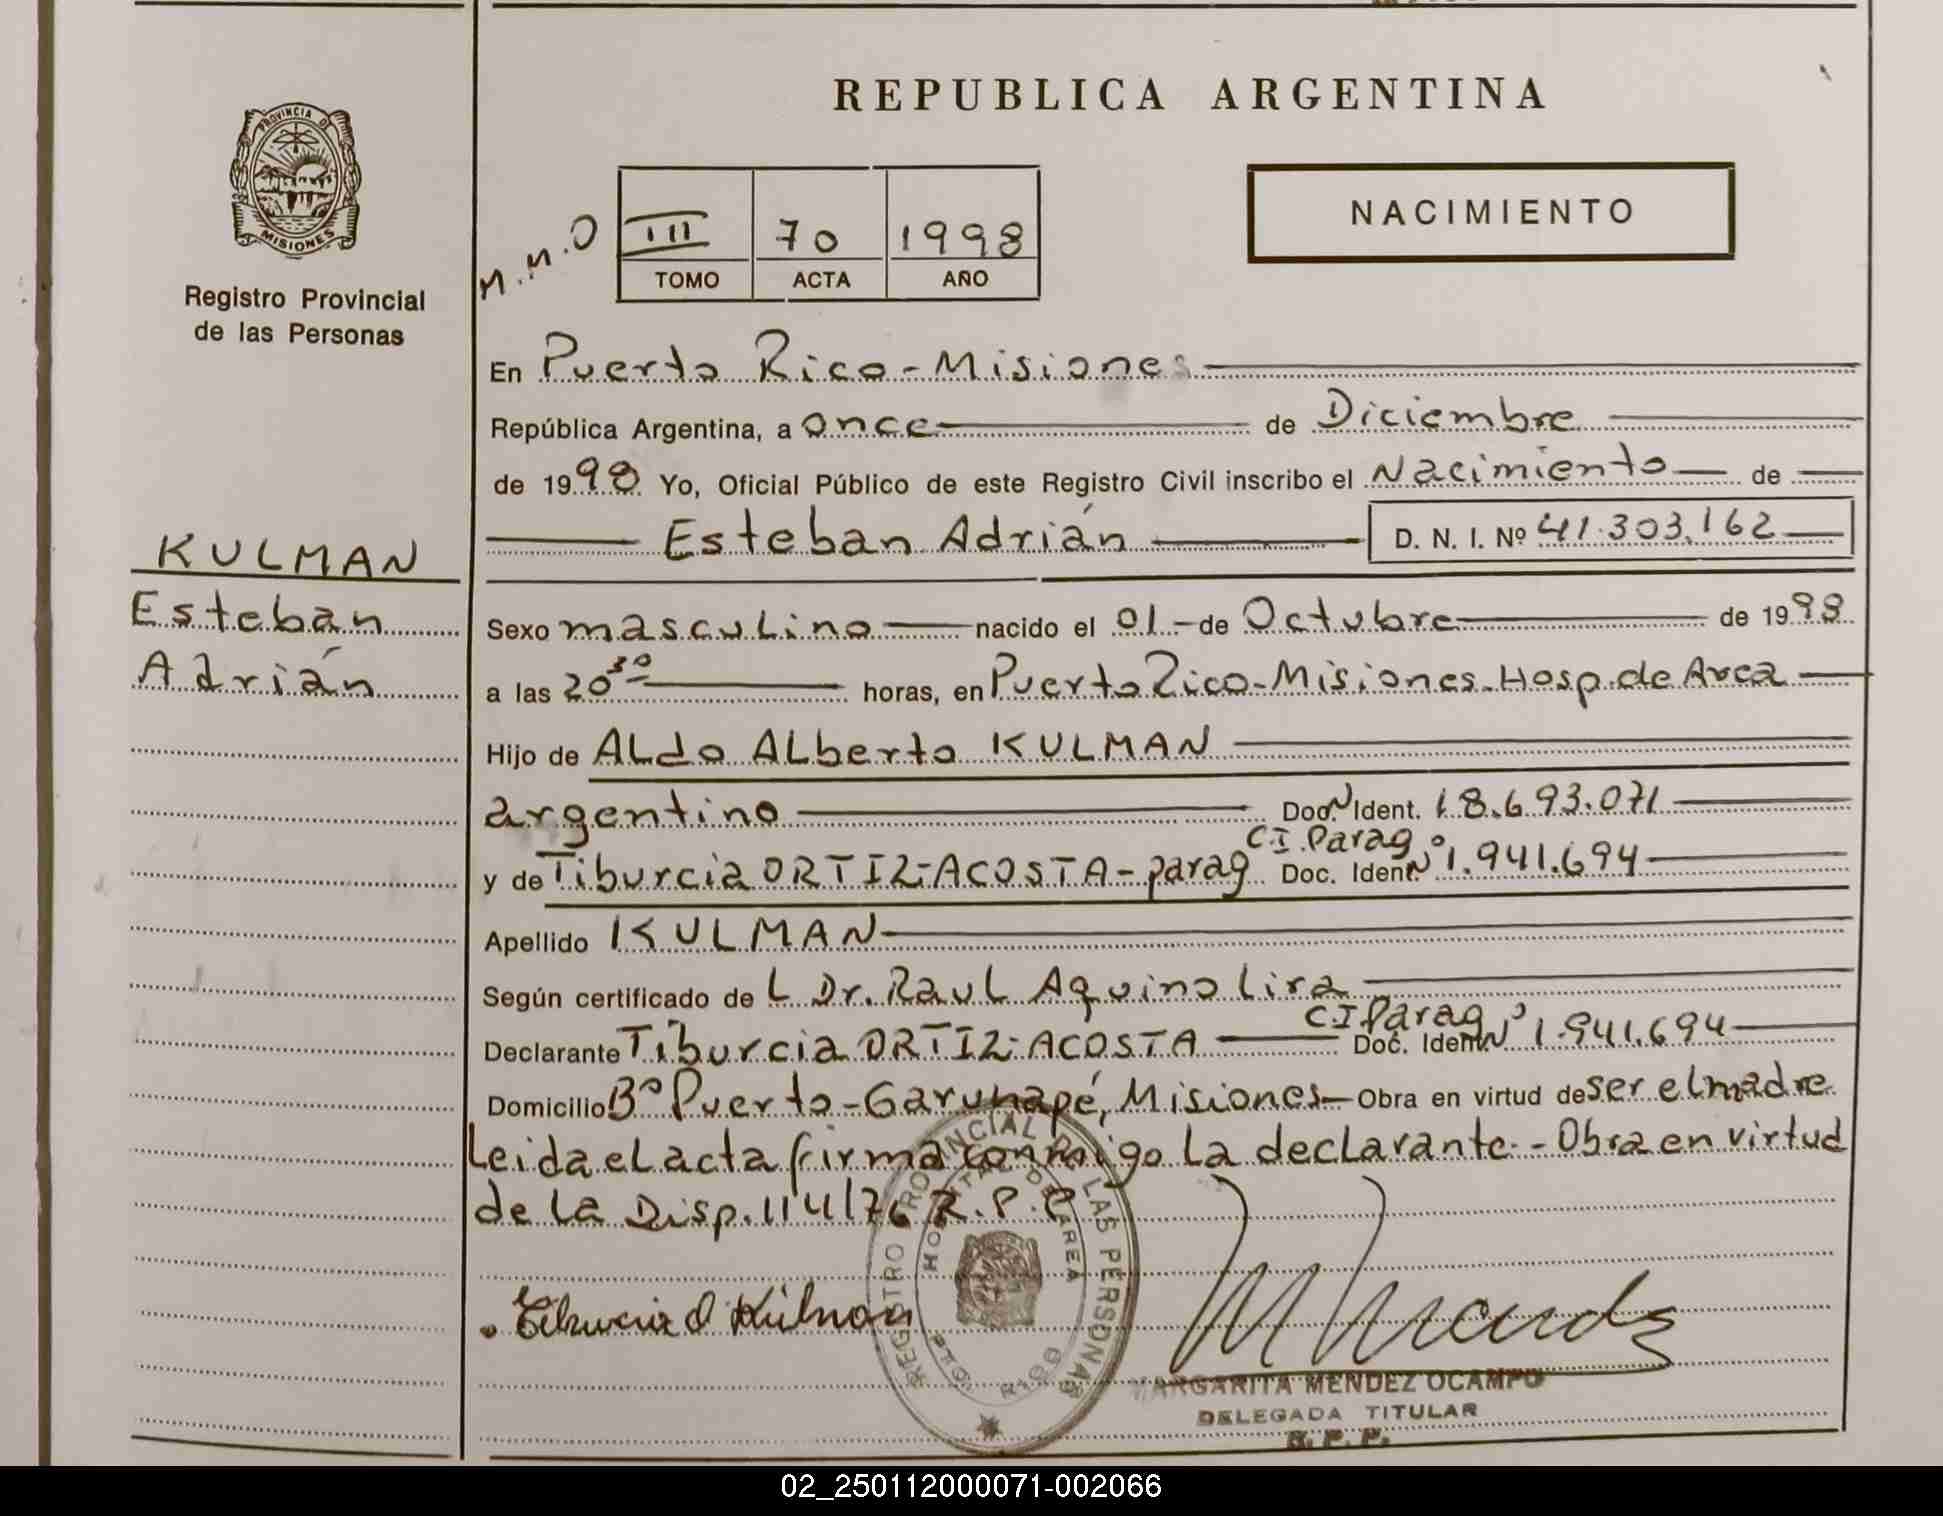 REPUBLICA ARGENTINA
PROVINCIA DE
MISIONES
Registro Provincial
de las Personas
M.M.O
III 70 1998
TOMO ACTA AÑO
NACIMIENTO
En Puerto Rico-Misiones
República Argentina, a once de Diciembre
de 1998 Yo, Oficial Público de este Registro Civil inscribo el Nacimiento de
Esteban Adrián D. N. I. Nº 41.303.162
KULMAN
Esteban
Adrián
Sexo masculino nacido el 01 - de Octubre de 1998
a las 20 30 horas, en Puerto Rico-Misiones-Hosp. de Area
Hijo de Aldo Alberto KULMAN
argentino Doc. N Ident. 18.693.071
y de Tiburcia ORTIZ-ACOSTA-parag C.I.Parag Doc. Ident. Nº 1.941.694
Apellido KULMAN
Según certificado de L Dr. Raul Aquino Lira
Declarante Tiburcia ORTIZ-ACOSTA C.I.Parag Doc. Ident. Nº 1.941.694
Domicilio Bº Puerto-Garuhapé, Misiones- Obra en virtud de ser el madre
Leida el acta firma conmigo la declarante.- Obra en virtud
de la Disp. 114/76 R.P.P
REGISTRO PROVINCIAL DE LAS PERSONAS
HOSPITAL DE AREA
PTO. RICO
MARGARITA MENDEZ OCAMPO
DELEGADA TITULAR
R. P. P.
02_250112000071-002066